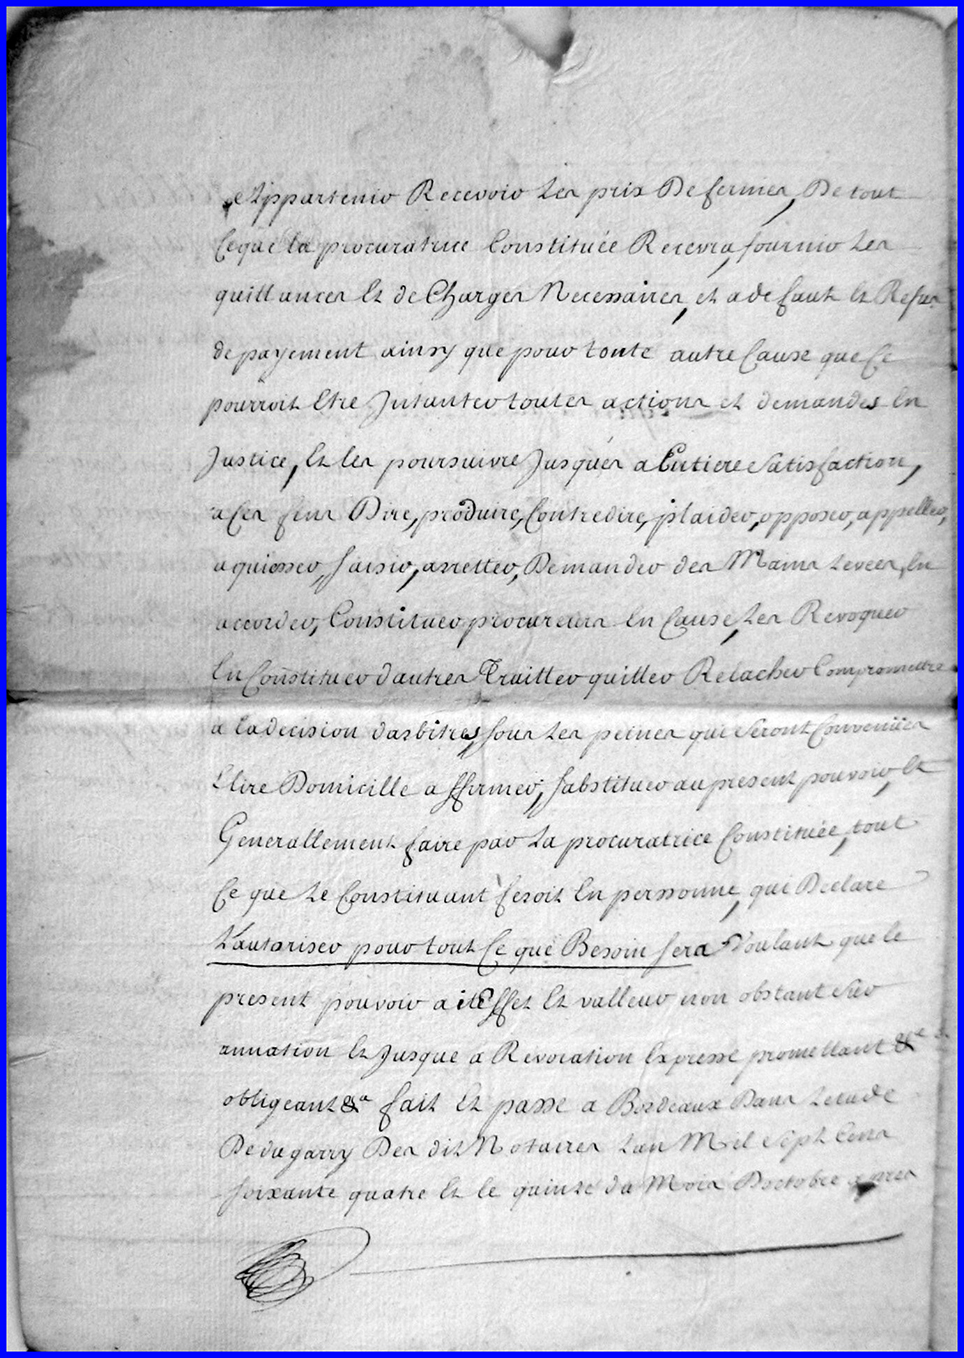 et Appartenir Recevoir Les prix De fermes, De tout
Ceque la procuratrice Constituée Recevra, fournir Les
quittances Et de Charges Necessaires, et a defaut Et Refus
de payement ainsy que pour toute autre Cause que Ce
pourroit Etre Jntanter toutes actions et demandes En
Justice, Et les poursuivre Jusques a Entiere Satisfaction,
a Ces fins Dire, produire, Contredire, plaider, opposer, appeller,
aquiesser, Saisir, arretter, Demander des Mains Levées, En
accorder, Constituer procureurs En Cause, Les Revoquer
En Constituer d'autres Traitter quitter Relacher Compromettre
a La decision d'arbitres, sous Les peines qui Seront Convenües
Elire Domicille affermer, substituer au present pouvoir, Et
Generallement faire par La procuratrice Constituée, tout
Ce que Le Constituant feroit En personne, qui Declare
L'autoriser pour tout Ce que Besoin sera Voulant que le
present pouvoir ait Effet Et valleur non obstant Sur
annation Et Jusque a Revocation Expresse promettant &ca
obligeant &a fait Et passé a Bordeaux Dans Letude
De dugarry Des dits Notaires Lan Mil Sept Cens
soixante quatre Et le quinze du Mois Doctobre apres